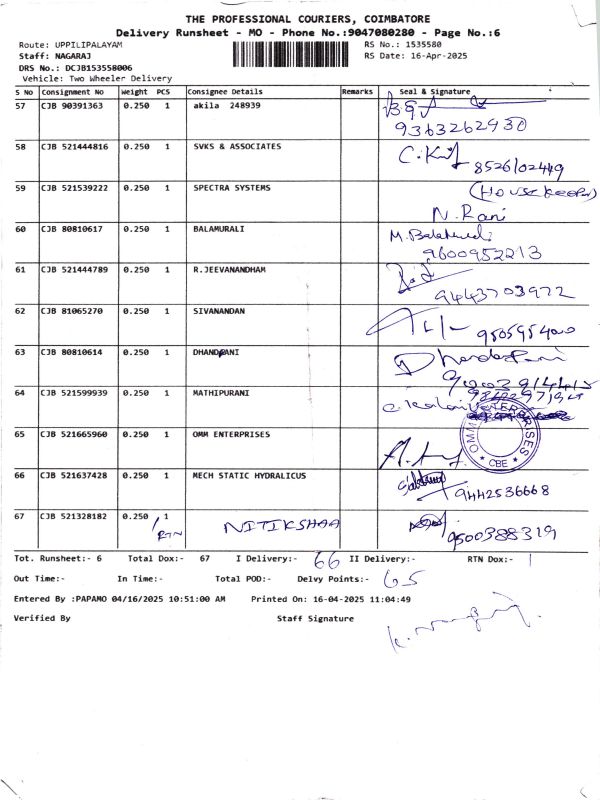 THE PROFESSIONAL COURIERS, COIMBATORE
Delivery Runsheet - MO - Phone No.:9047080280 - Page No.:6
Route: UPPILIPALAYAM RS No.: 1535580
Staff: NAGARAJ RS Date: 16-Apr-2025
DRS No.: DCJB153558006
Vehicle: Two Wheeler Delivery
S No Consignment No Weight PCS Consignee Details Remarks Seal & Signature
57 CJB 90391363 0.250 1 akila 248939
9363262930
58 CJB 521444816 0.250 1 SVKS & ASSOCIATES
8526102449
59 CJB 521539222 0.250 1 SPECTRA SYSTEMS (House keeper)
N. Rani
60 CJB 80810617 0.250 1 BALAMURALI
9600952213
61 CJB 521444789 0.250 1 R.JEEVANANDHAM
9443703972
62 CJB 81065270 0.250 1 SIVANANDAN
63 CJB 80810614 0.250 1 DHANDPANI
64 CJB 521599939 0.250 1 MATHIPURANI
65 CJB 521665960 0.250 1 OMM ENTERPRISES
OMM ENTERPRISES
CBE
66 CJB 521637428 0.250 1 MECH STATIC HYDRALICUS
9442536668
67 CJB 521328182 0.250 1 NITIKSHAA
1 RTN
9500388319
Tot. Runsheet:- 6 Total Dox:- 67 I Delivery:- 66 II Delivery:- RTN Dox:- 1
Out Time:- In Time:- Total POD:- Delvy Points:- 65
Entered By :PAPAMO 04/16/2025 10:51:00 AM Printed On: 16-04-2025 11:04:49
Verified By Staff Signature